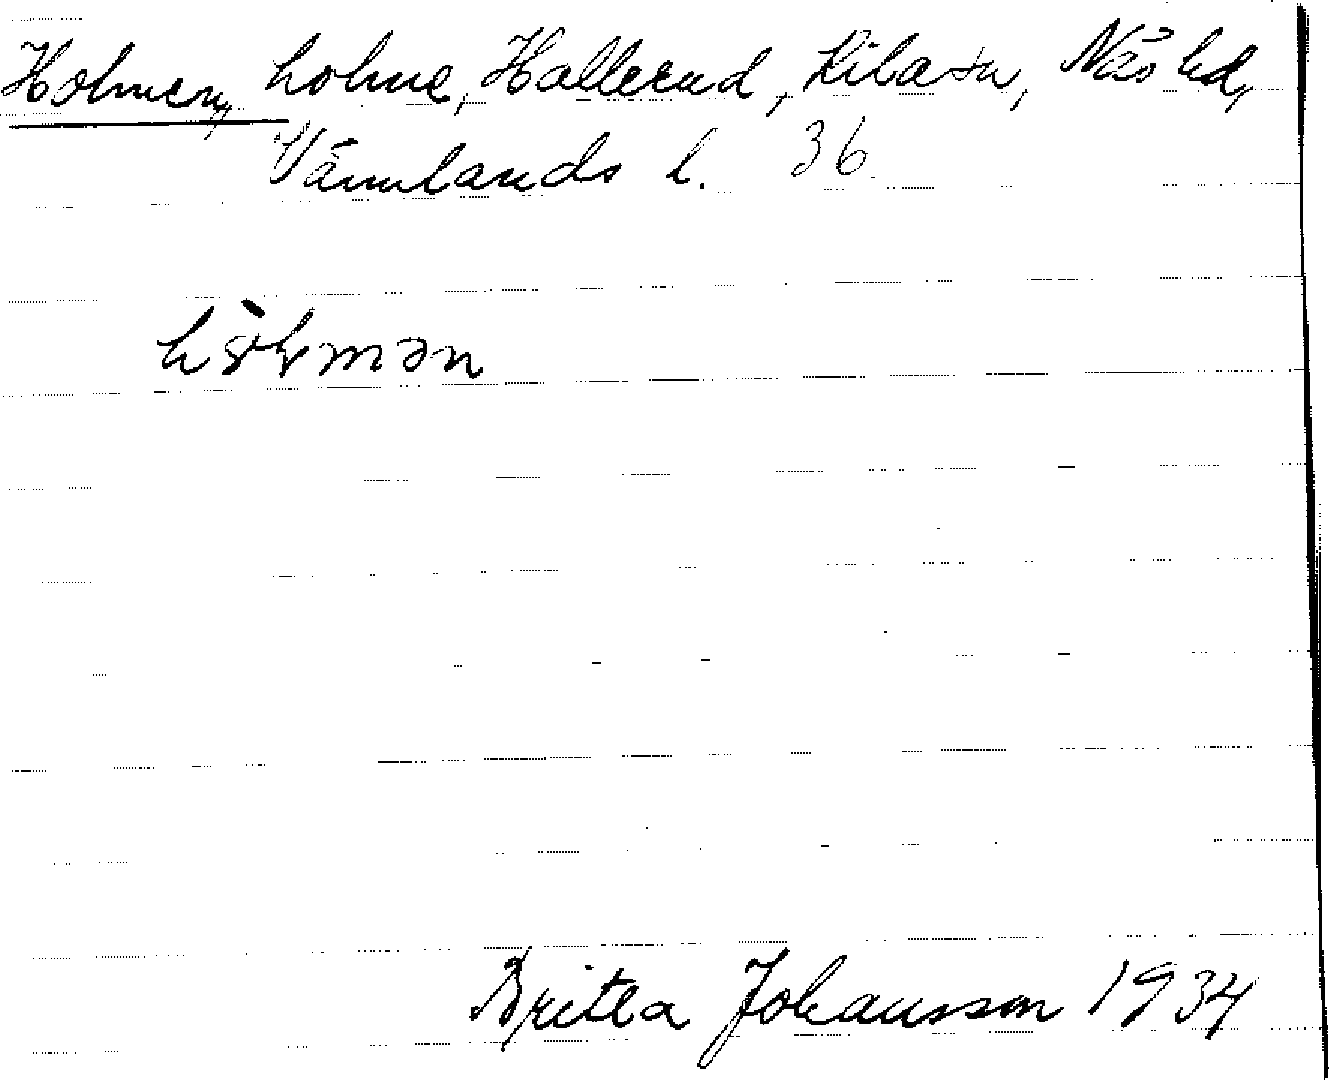 Holmen, holme, Hallerud, Kila sn, Näs hd,
Värmlands l. 36
Britta Johansson 1934